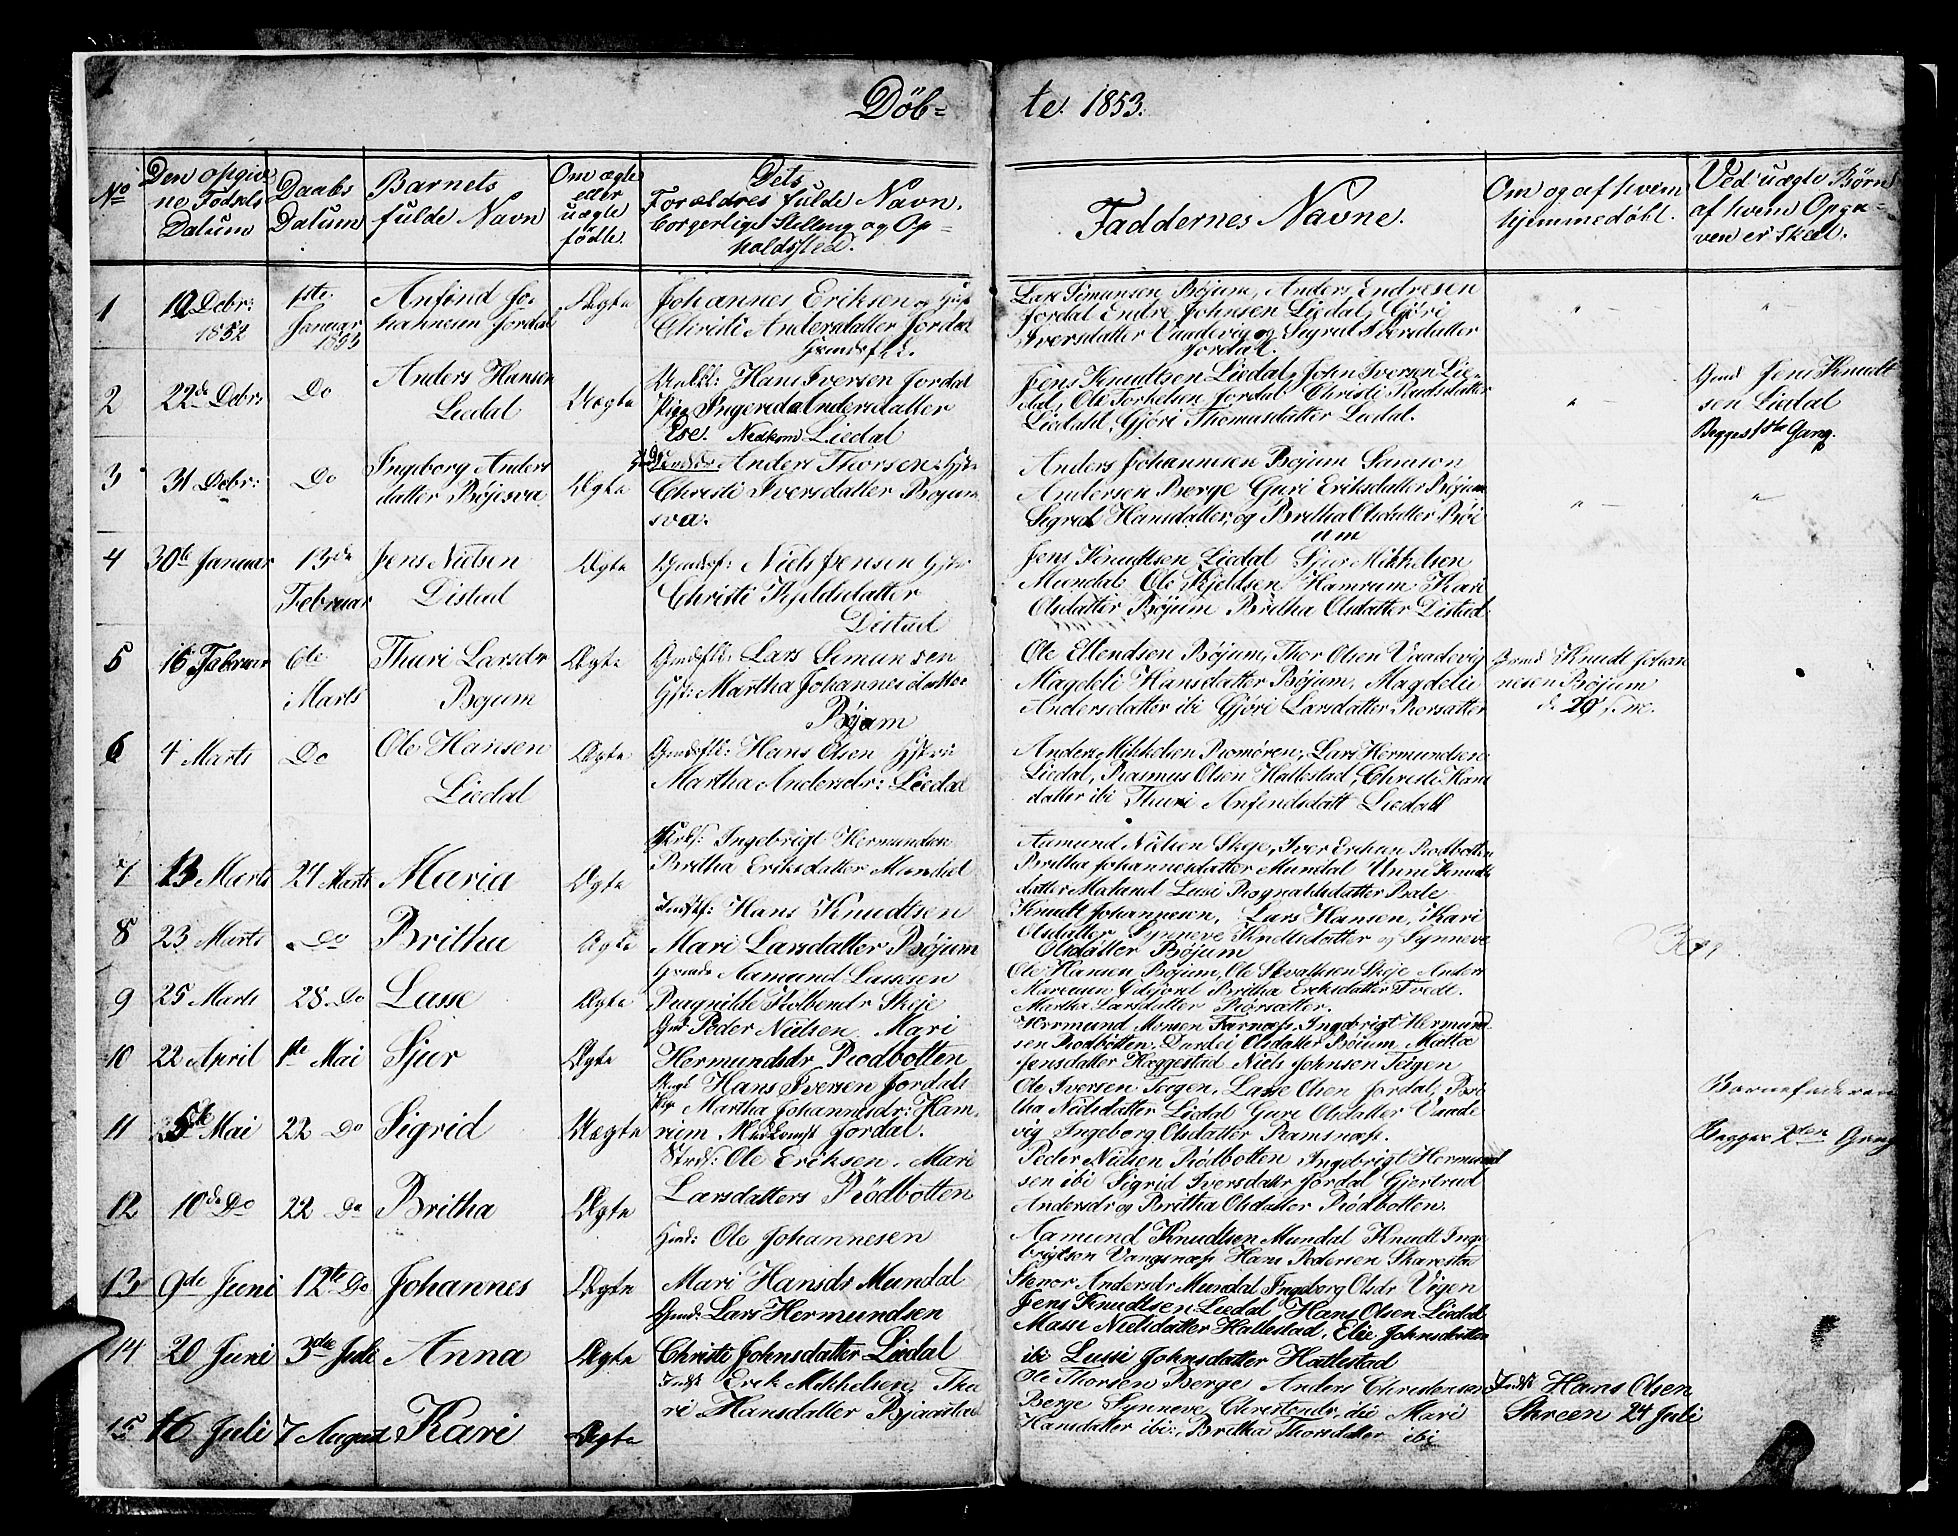 Døb=
te. 1853.
No
Den opgiv
ne Fødsels
Datum
Daabs
Datum
Barnets
fulde Navn
Om ægte
eller
uægte
födte.
Dets
Forældres fulde Navn,
borgerlige Stilling og Op-
holdssted.
Faddernes Navne.
Om og af hvem
hjemmedøbt.
Ved uægte Børn
af hvem Opga-
ven er skeet.
1
19 Debr:
1852
1ste
Januar
1853
Anfind Jo-
hannesen Jordal
Ægte
Johannes Eriksen og
Christi Andersdatter Jordal
Lars Simunsen Bøjum, Anders Endresen
Jordal Endre Johnsen Liedal, Gjöri
Iversdatter Vaadevig og Sigrid Iversdatter
Jordal.
2
22de Debr:
Do
Anders Hansen
Liedal
Uægte
Hans Iversen Jordal
Pige Ingerda Andersdatter
Ese. Nedkom Liedal
Jens Knudtsen Liedal, John Iversen Lie-
dal, Ole Torkelsen Jordal Christi
Liedahl, Gjöri Thomasdatter Liedal.
Gmd Jens Knudt
sen Liedal
Begges 1ste Gang.
3
31 Debr:
Do
Ingeborg Anders
datter Bøjesva
Ægte
Anders Thorsen
Christi Iversdatter Bøjum
sva.
Anders Johannesen Bøjum Samson
Andersen Berge Guri Eriksdatter Bøjum
Sigrid Hansdatter, og Britha Olsdatter Böi
um
4
30te Januar
13de
Februar
Jens Nielsen
Distad
Ægte
Gmdsf: Niels Jensen
Christi Kjeldsdatter
Distad
Jens Knudtsen Liedal Sjur Mikkelsen
Mundal; Ole Kjeldsen Hamrum Kari
Olsdatter Bøjum Britha Olsdatter Distad
5
16 Februar
6te
Marts
Thuri Larsdr
Bøjum
Ægte
Lars Simunsen
Martha Johannesdatter
Bøjum
Ole Ellendsen Bøjum, Thor Olsen Vaadevig
Magdeli Hansdatter Bøjum, Magdelie
Andersdatter ibi Gjöri Larsdatter
Gmd Knudt Johan
nesen Bøjum
d. 20
6
4 Marts
Do
Ole Hansen
Liedal
Ægte
Hans Olsen
Martha Andersdr: Liedal
Anders Mikkelsen Romören, Lars Hermundsen
Liedal, Rasmus Olsen Hatlestad Christi Hans
datter ibi Thuri Anfindsdatt Liedal
7
13 Marts
27 Marts
Maria
Ægte
Ingebrigt Hermundsen
Britha Eriksdatter Mundal
Aamund Nielsen Skeje, Iver Eriksen Rödbotten
Britha Johannesdatter Mundal Unni Knudts
datter Lussi Rognaldsdatter Bale
8
23 Marts
Do
Britha
Ægte
Hans Knudtsen
Mari Larsdatter Bøjum
Knudt Johannesen, Lars Hansen, Kari
Olsdatter Synneve Knudtsdatter og Synneve
Olsdatter Bøjum
9
25 Marts
28 Do
Lasse
Ægte
Aamund Lassesen
Ragnilde Skeje
Ole Hansen Bøjum, Ole Skeje Anders
Britha Eriksdatter Tvedt.
Martha Larsdatter
10
22 April
1ste Mai
Sjur
Ægte
Gmd Peder Nielsen Mari
Hermundsdr Rödbotten
Hermund Monsen Farnæs, Ingebrigt Hermund
sen Rödbotten, Durdei Olsdatter Bøjum Malta
Jensdatter Hæggestad Niels Johnsen Teigen
11
5te Mai
22 Do
Sigrid
Uægte
Hans Iversen Jordal
Pige Martha Johannesdr: Ham-
rum Nedkomst Jordal.
Ole Iversen Teigen, Lasse Olsen Jordal, Bri
tha Nielsdatter Liedal Guri Olsdatter Vaade
vig Ingeborg Olsdatter Ramsnæs.
Barnefaderen
Begges 2den Gang
12
10de Do
22 Do
Britha
Ægte
Ole Eriksen, Mari
Larsdatters Rödbotten
Peder Nielsen Rödbotten Ingebrigt Hermund
sen ibi Sigrid Iversdatter Jordal Gjertrud
Andersdr og Britha Olsdatter Rödbotten.
13
9de Juni
12te Do
Johannes
Ægte
Gmd: Ole Johannesen
Mari Hansdr Mundal
Aamund Knudtsen Mundal Knudt Inge
brigtson Vangsnæs Hans Pedersen Skarestad
Stenor Andersdr Mundal Ingeborg Olsdr Vigen
14
20 Juni
3die Juli
Anna
Ægte
Gmd: Lars Hermundsen
Christi Johnsdatter Liedal
Jens Knudtsen Liedal Hans Olsen Liedal
Massi Nielsdatter Hatlestad, Elie Johnsdatter
ibi Lussi Johnsdatter Hatlestad
15
16 Juli
7 August
Kari
Ægte
Erik Mikkelsen Thu
ri Hansdatter Bjaastad
Ole Thorsen Berge Anders Christensen
Berge Synneve Christensdr, ibi Mari
Hansdatter ibi, Britha Thorsdatter ibi
Hans Olsen
Skreen 24 Juli